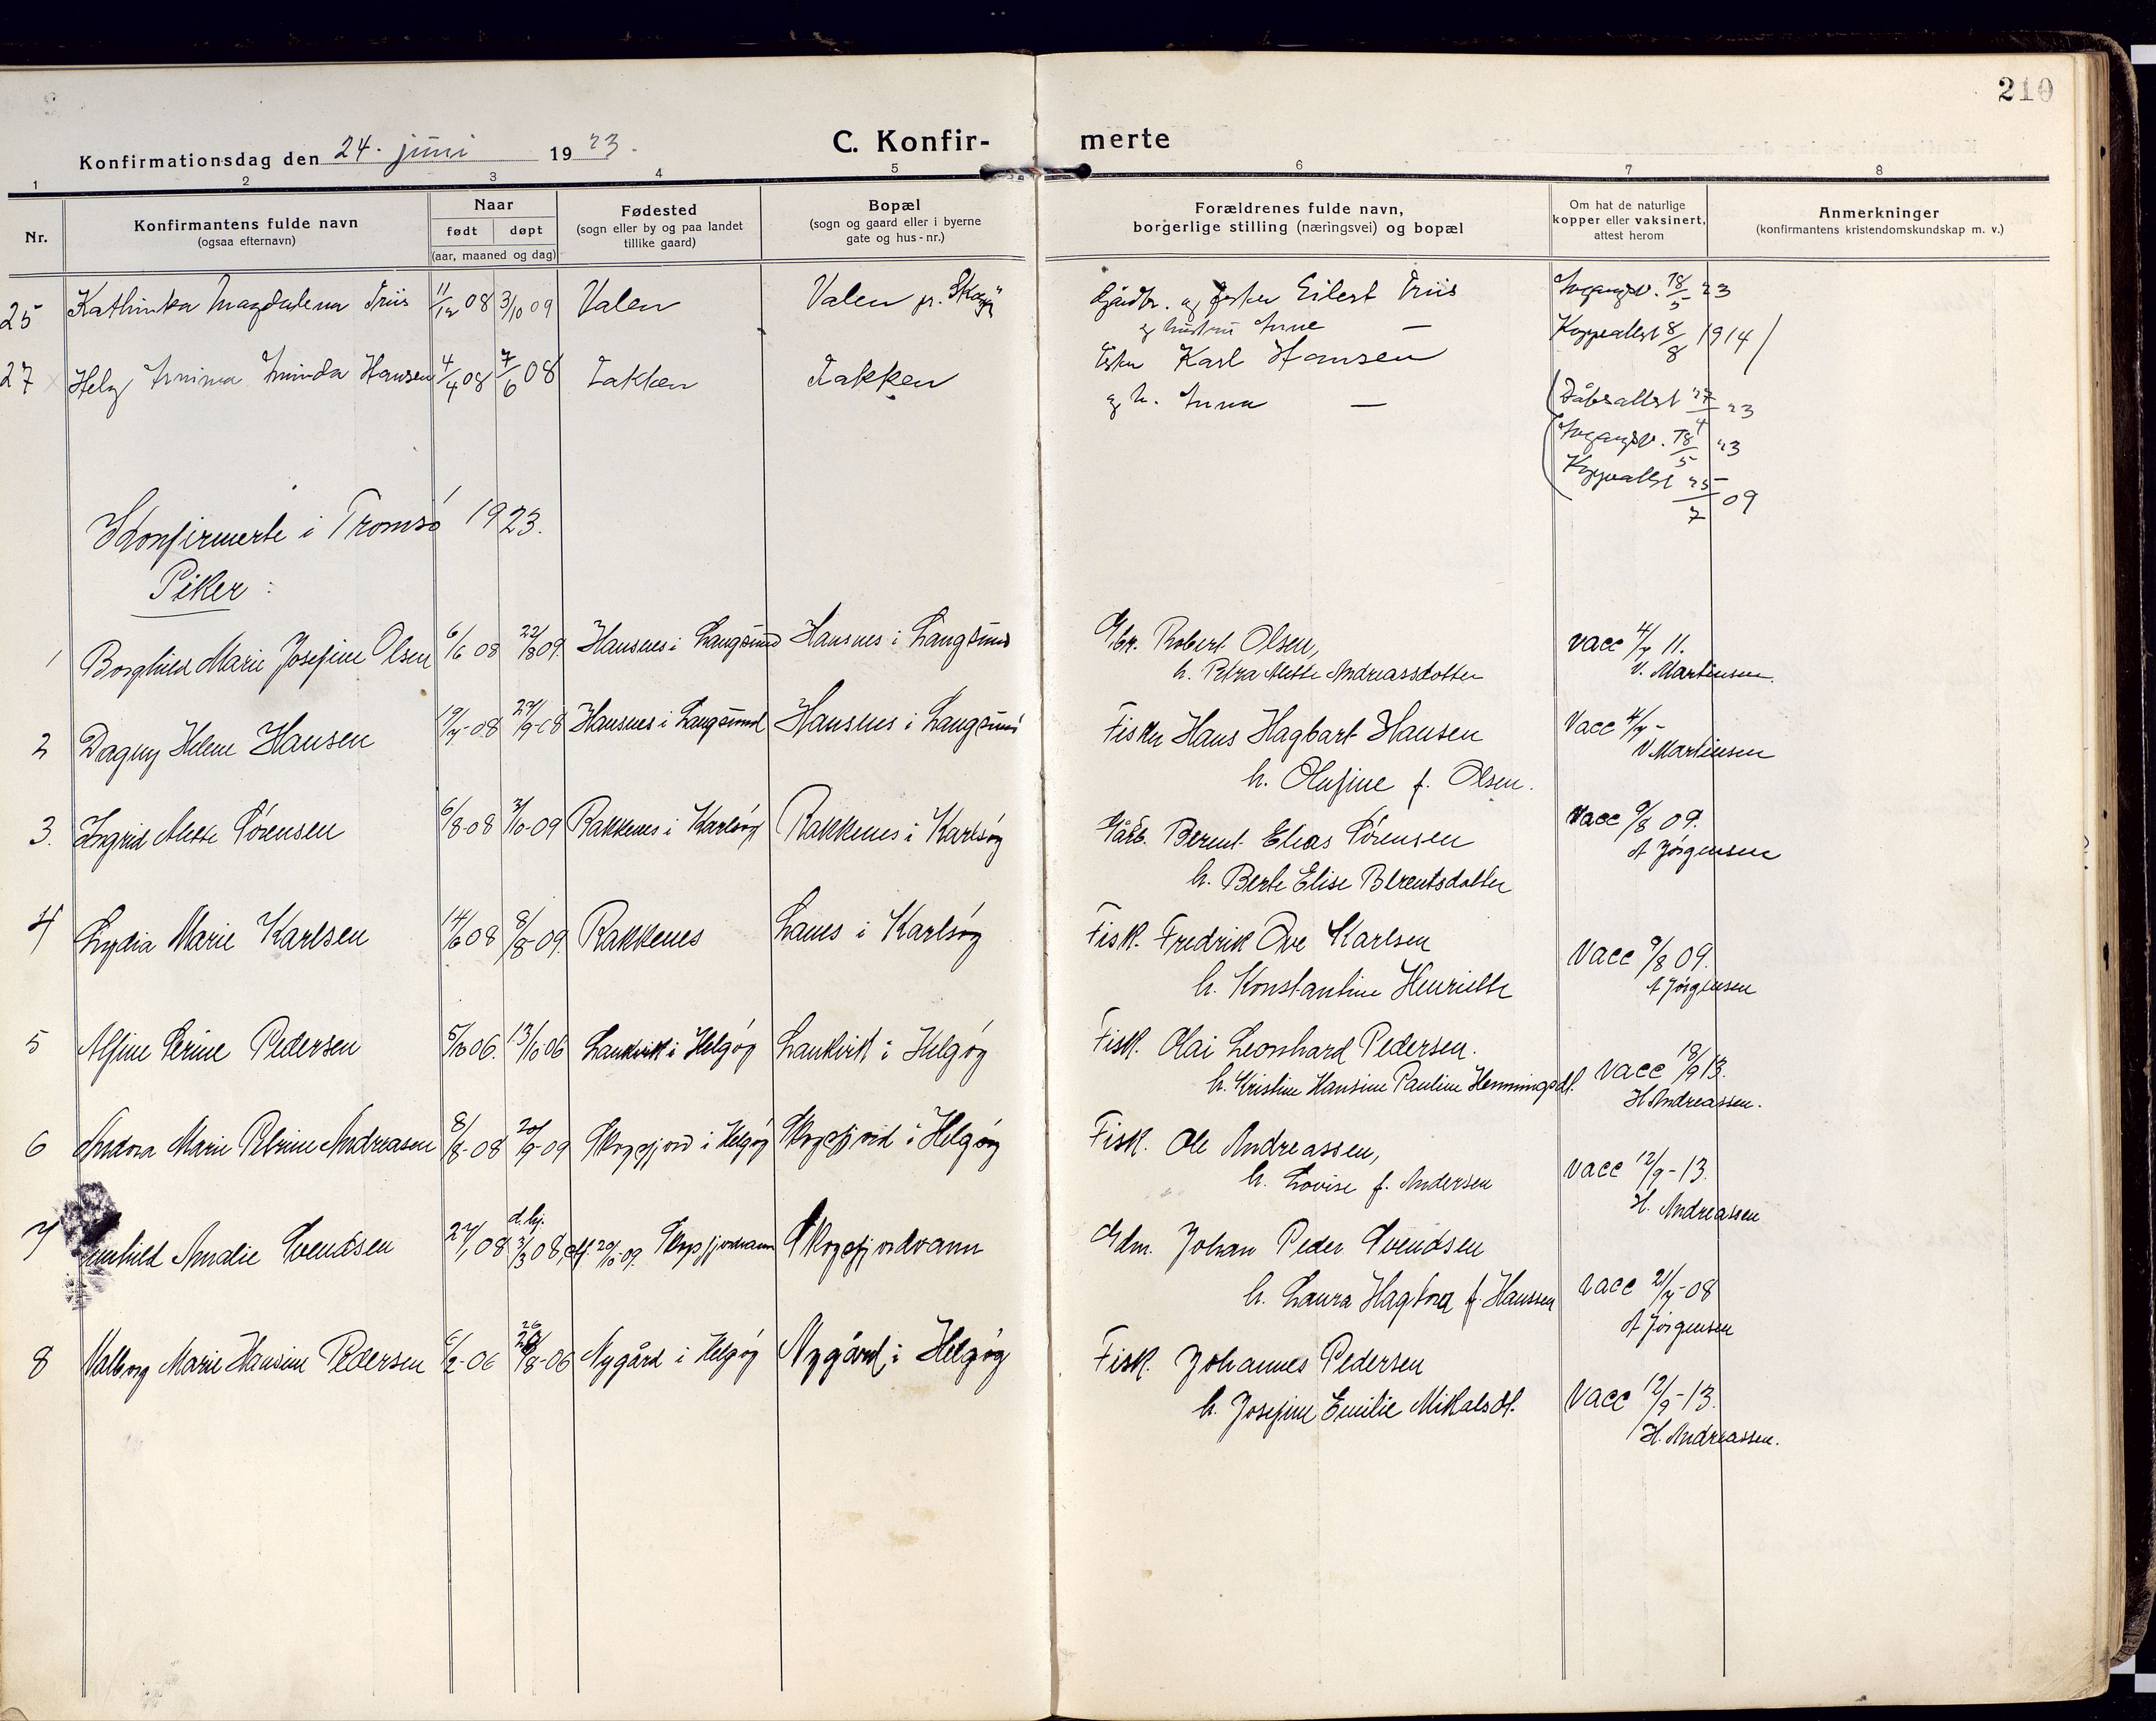 210
Konfirmationsdag den 24. juni 1923.
C. Konfir- merte
1 2 3 4 5 6 7 8
Nr.
Konfirmantens fulde navn
(ogsaa efternavn)
Naar
født døpt
(aar, maaned og dag)
Fødested
(sogn eller by og paa landet
tillike gaard)
Bopæl
(sogn og gaard eller i byerne
gate og hus-nr.)
Forældrenes fulde navn,
borgerlige stilling (næringsvei) og bopæl
Om hat de naturlige
kopper eller vaksinert,
attest herom
Anmerkninger
(konfirmantens kristendomskundskap m. v.)
25 Kathinka Magdalena Friis 11/12 08 3/10 09 Valen Valen pr. Gårdbr. og fisker Eilert Friis 18/5 23
og hustru Anne — Koppeattest 8/8 1914
27 Helg Hansen 4/4 08 7/6 08 Takken Takken Fisker Karl Hansen
og h. Anna — Dåbsattest 27/4 23
18/5 23
Koppeattest 25/7 09
Konfirmerte i Tromsø 1923.
Piker:
1 Borghild Marie Josefine Olsen 6/6 08 22/8 09. Hansnes i Langsund Hansnes i Langsund Gbr. Robert Olsen, vacc 4/7 11.
h. Petra Mette Andreassdotter V. Martinsen.
2 Dagny Helene Hansen 19/7-08 27/9-08 Hansnes i Langsund Hansnes i Langsund Fisker Hans Hagbart Hansen Vacc 4/7-
V Martinsen
h. Olufine f. Olsen.
3. Ingrid Mette Sörensen 6/8-08 3/10-09 Rakkenes i Karlsøy Rakkenes i Karlsøy Gårb. Berent Elias Sörensen Vacc 9/8 09.
A Jörgensen
h. Berte Elise Berentsdatter
4 Lydia Marie Karlsen 14/6 08 8/8-09. Rakkenes Lanes i Karlsøy Fisk. Fredrik Ove Karlsen Vacc 9/8 09.
h. Konstantine Henriette A Jörgensen
5 Alfine Serine Pedersen 5/10 06. 13/10 06 Lankvik i Helgøy Lankvik i Helgøy Fisk. Olai Leonhard Pedersen. vacc 18/9 13.
h. Kristine Hansine Pauline Henningsdt. H. Andreassen.
6 Andora Marie Petrine Andreasen 8/8-08 20/9-09 Skogsfjord i Helgøy Skogsfjord i Helgøy Fisk. Ole Andreassen, vacc 12/9-13.
h. Lovise f. Andersen H. Andreassen
7 Amalie Svendsen 27/1 08 d. hj. 3/3 08, stf. 20/10-09. Skogsfjordvann Skogsfjordvann Gdm. Johan Peder Svendsen vacc 21/7-08
h. Laura Hagbora f. Hanssen A Jörgensen
8 Valborg Marie Hansine Pedersen 6/2-06 26 26/8-06 Nygård i Helgøy Nygård i Helgøy Fisk. Johannes Pedersen Vacc 12/9-13.
h. Josefine Emilie Mikalsdt. H. Andreassen.